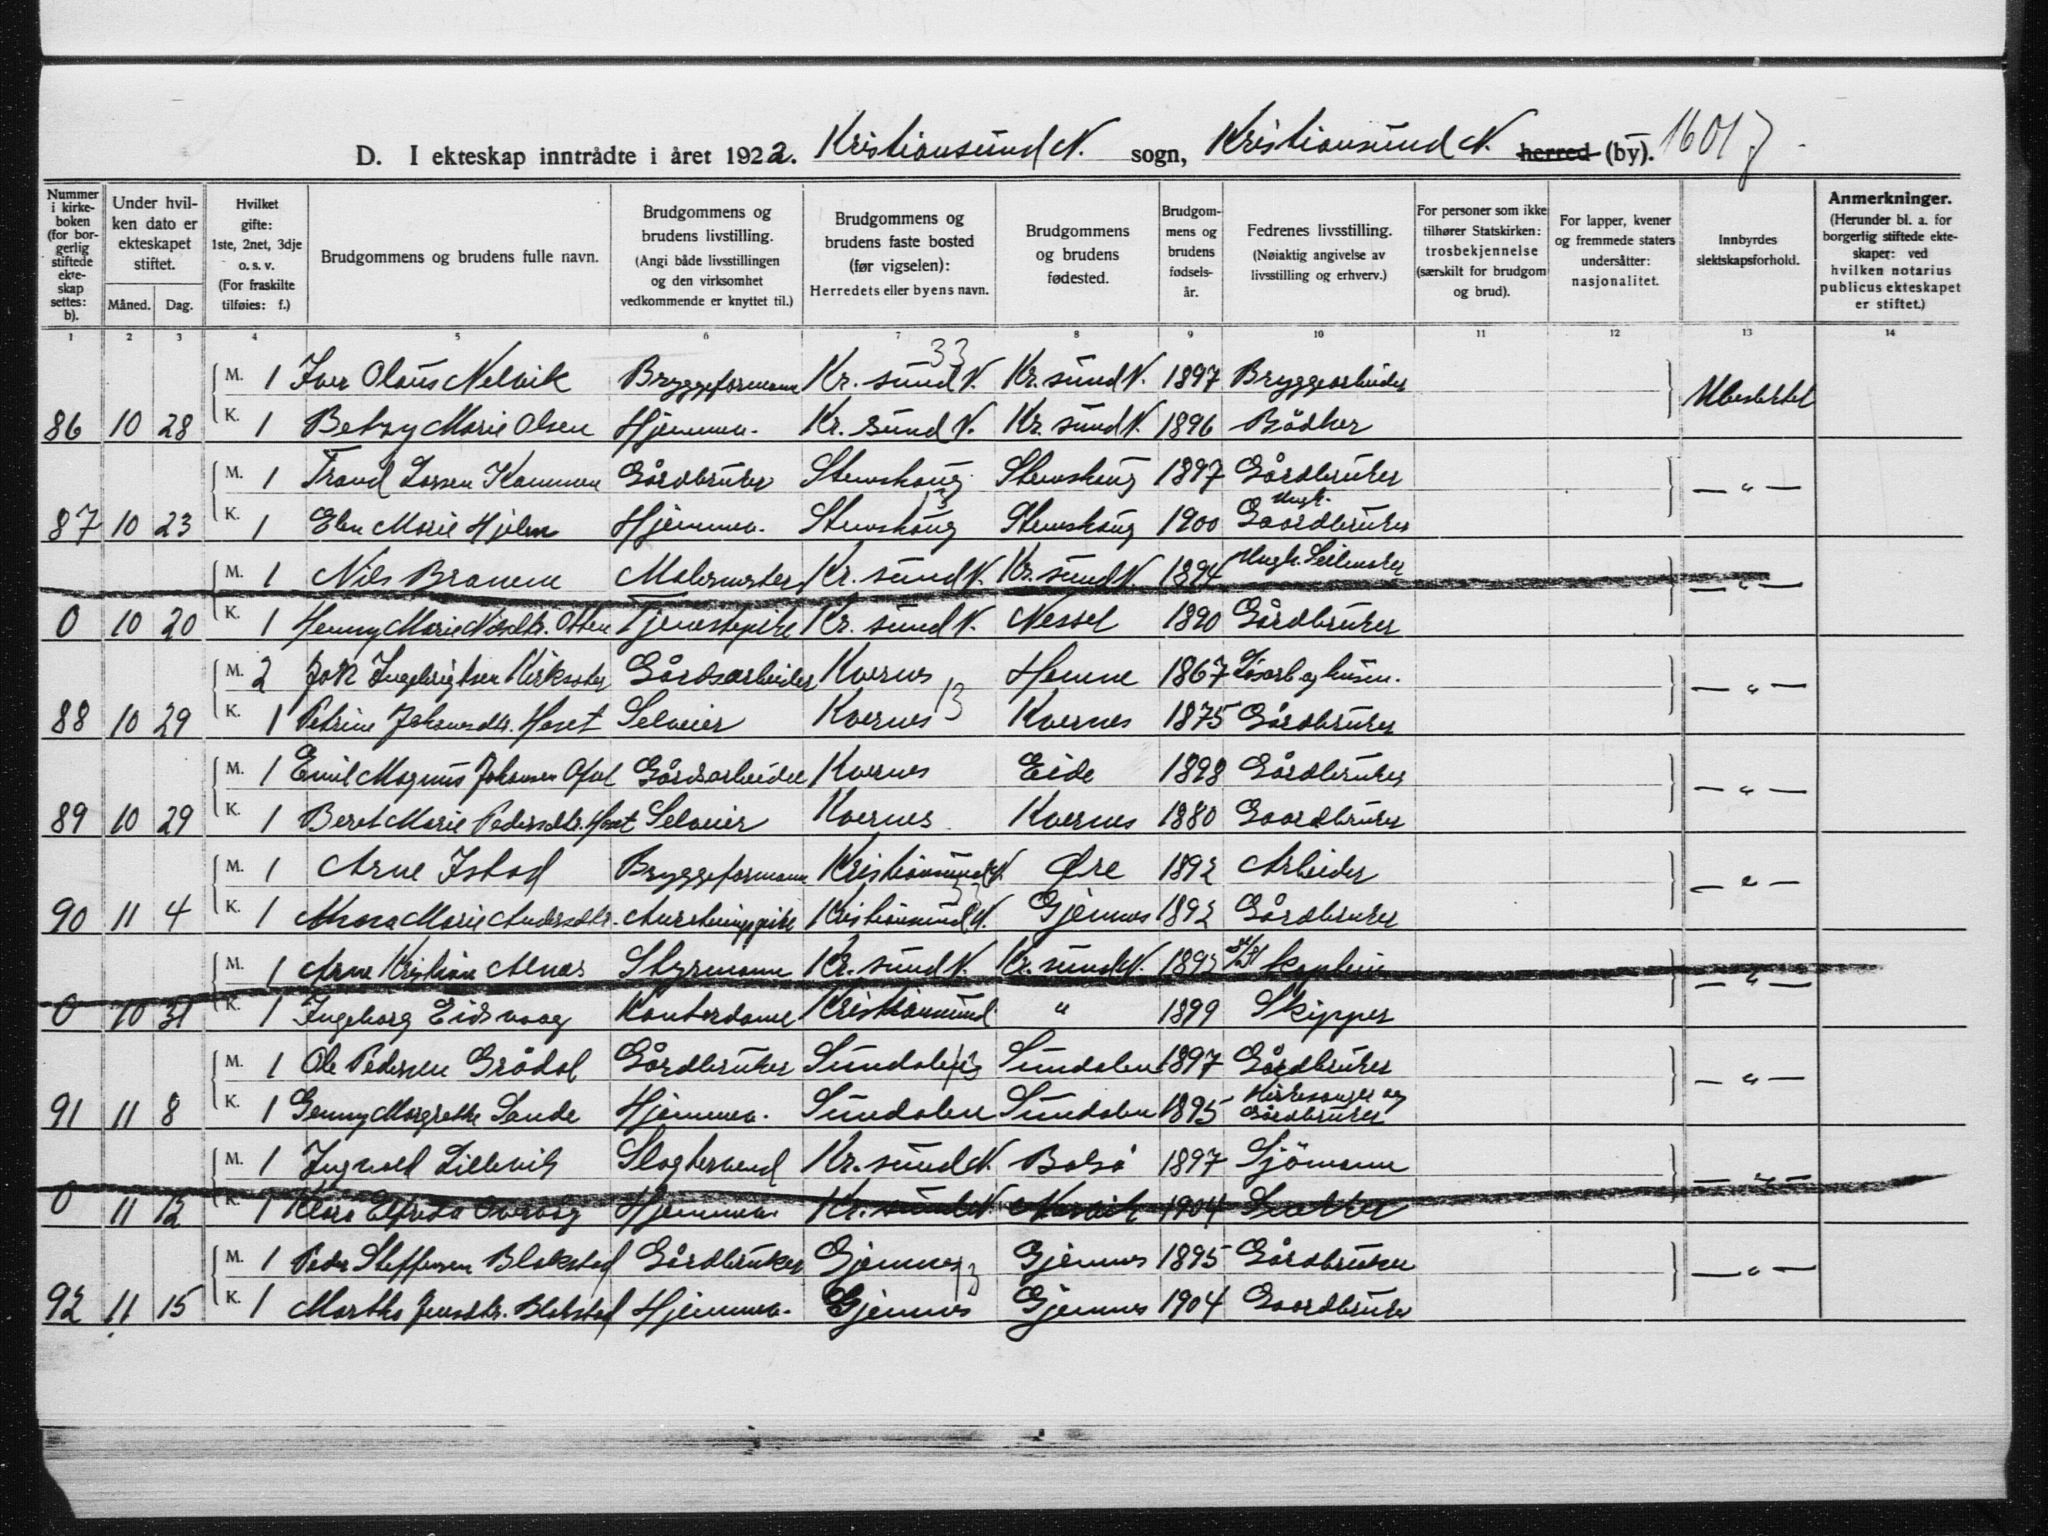 D. I ekteskap inntrådte i året 1922. Kristiansund N. sogn, Kristiansund N. herred (by). 1601
Nummer i kirkeboken (for borgerlig stiftede ekteskap settes: b).
Under hvilken dato er ekteskapet stiftet.
Måned. Dag.
Hvilket gifte: 1ste, 2net, 3dje o. s. v. (For fraskilte tilføies: f.)
Brudgommens og brudens fulle navn.
Brudgommens og brudens livstilling. (Angi både livsstillingen og den virksomhet vedkommende er knyttet til.)
Brudgommens og brudens faste bosted (før vigselen): Herredets eller byens navn.
Brudgommens og brudens fødested.
Brudgommens og brudens fødselsår.
Fedrenes livsstilling. (Nøiaktig angivelse av livsstilling og erhverv.)
For personer som ikke tilhører Statskirken: trosbekjennelse (særskilt for brudgom og brud).
For lapper, kvener og fremmede staters undersåtter: nasjonalitet.
Innbyrdes slektskapsforhold.
Anmerkninger. (Herunder bl. a. for borgerlig stiftede ekteskaper: ved hvilken notarius publicus ekteskapet er stiftet.)
1 2 3 4 5 6 7 8 9 10 11 12 13 14
33
M. 1 Iver Olaus Nelvik Bryggeformann Kr. sund N. Kr. sund N. 1897 Bryggearbeider Ubeslektet
86 10 28 K. 1 Betzy Marie Olsen Hjemmev. Kr. sund N. Kr. sund N. 1896 Bödker
M. 1 Trond Larsen Gårdbruker Stemshaug Stemshaug 1897 Gårdbruker — " —
13
87 10 23 K. 1 Elen Marie Hjelen Hjemmev. Stemshaug Stemshaug 1900 Gaardbruker
M. 1 Nils Malermester Kr. sund N. Kr. sund N. 1894 — " —
0 10 20 K. 1 Henny Marie Tjenestepike Kr. sund N. Nesset 1890 Gårdbruker
M. 2 Ingebrigtsen Gårdsarbeider Kvernes Hemne 1867 — " —
13
88 10 29 K. 1 Petrine Johansdtr. Hoset Selveier Kvernes Kvernes 1875 Gårdbruker
M. 1 Emil Magnus Johansen Gårdsarbeider Kvernes Eide 1898 Gårdbruker — " —
89 10 29 K. 1 Beret Marie Pedersdtr. Hoset Selveier Kvernes Kvernes 1880 Gaardbruker
M. 1 Arne Istad Bryggeformann Kristiansund N. Øre 1892 Arbeider — " —
33
90 11 4 K. 1 Anna Marie Andersdtr. Kristiansund N. Gjemnes 1892 Gårdbruker
M. 1 Arne Kristian Alnæs Styrmann Kr. sund N. Kr. sund N. 1893 — " —
0 10 31 K. 1 Ingeborg Eidsvaag Kontordame Kristiansund " 1899 Skipper
M. 1 Ole Pedersen Grödal Gårdbruker Sundalen 13 Sundalen 1897 Gårdbruker — " —
91 11 8 K. 1 Genny Margrethe Sande Hjemmev. Sundalen Sundalen 1895 Kirkesanger og Gårdbruker
M. 1 Ingvald Lillevik Kr. sund N. Bolsö 1897 Sjömann — " —
0 11 12 K. 1 Klara Elfrida Hjemmev. Kr. sund N. Narvik 1904
M. 1 Peder Steffensen Blakstad Gårdbruker Gjemnes Gjemnes 1895 Gårdbruker — " —
13
92 11 15 K. 1 Martha Jensdtr. Blakstad Hjemmev. Gjemnes Gjemnes 1904 Gaardbruker